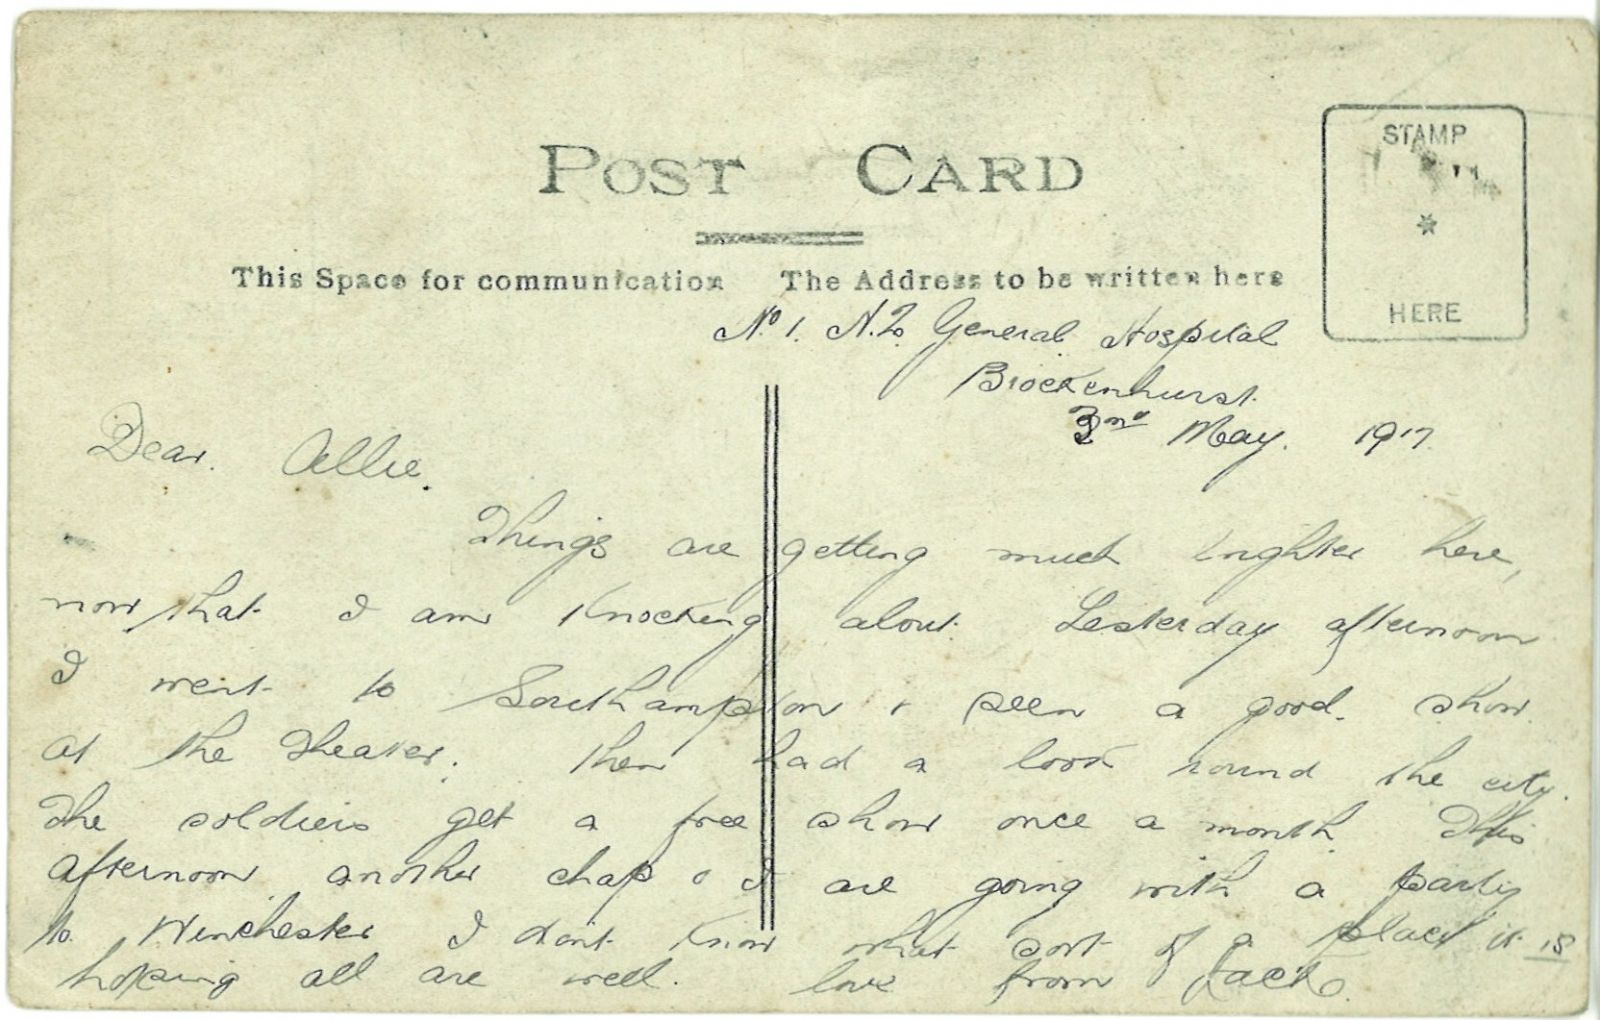 POST CARD
STAMP
HERE
This Space for communication The Address to be written here
No 1. N.Z. General Hospital
Brockenhurst.
3rd May. 1917.
Dear. Allie.
Things are getting much brighter here,
now that I am knocking about. Yesterday afternoon
I went to Southampton & seen a good. show.
at the Theater. then had a look round the city.
The soldiers get a free show once a month. This
afternoon another chap & I are going with a party
to Winchester I dont know what sort of a place it is
hoping all are well. love from Jack.